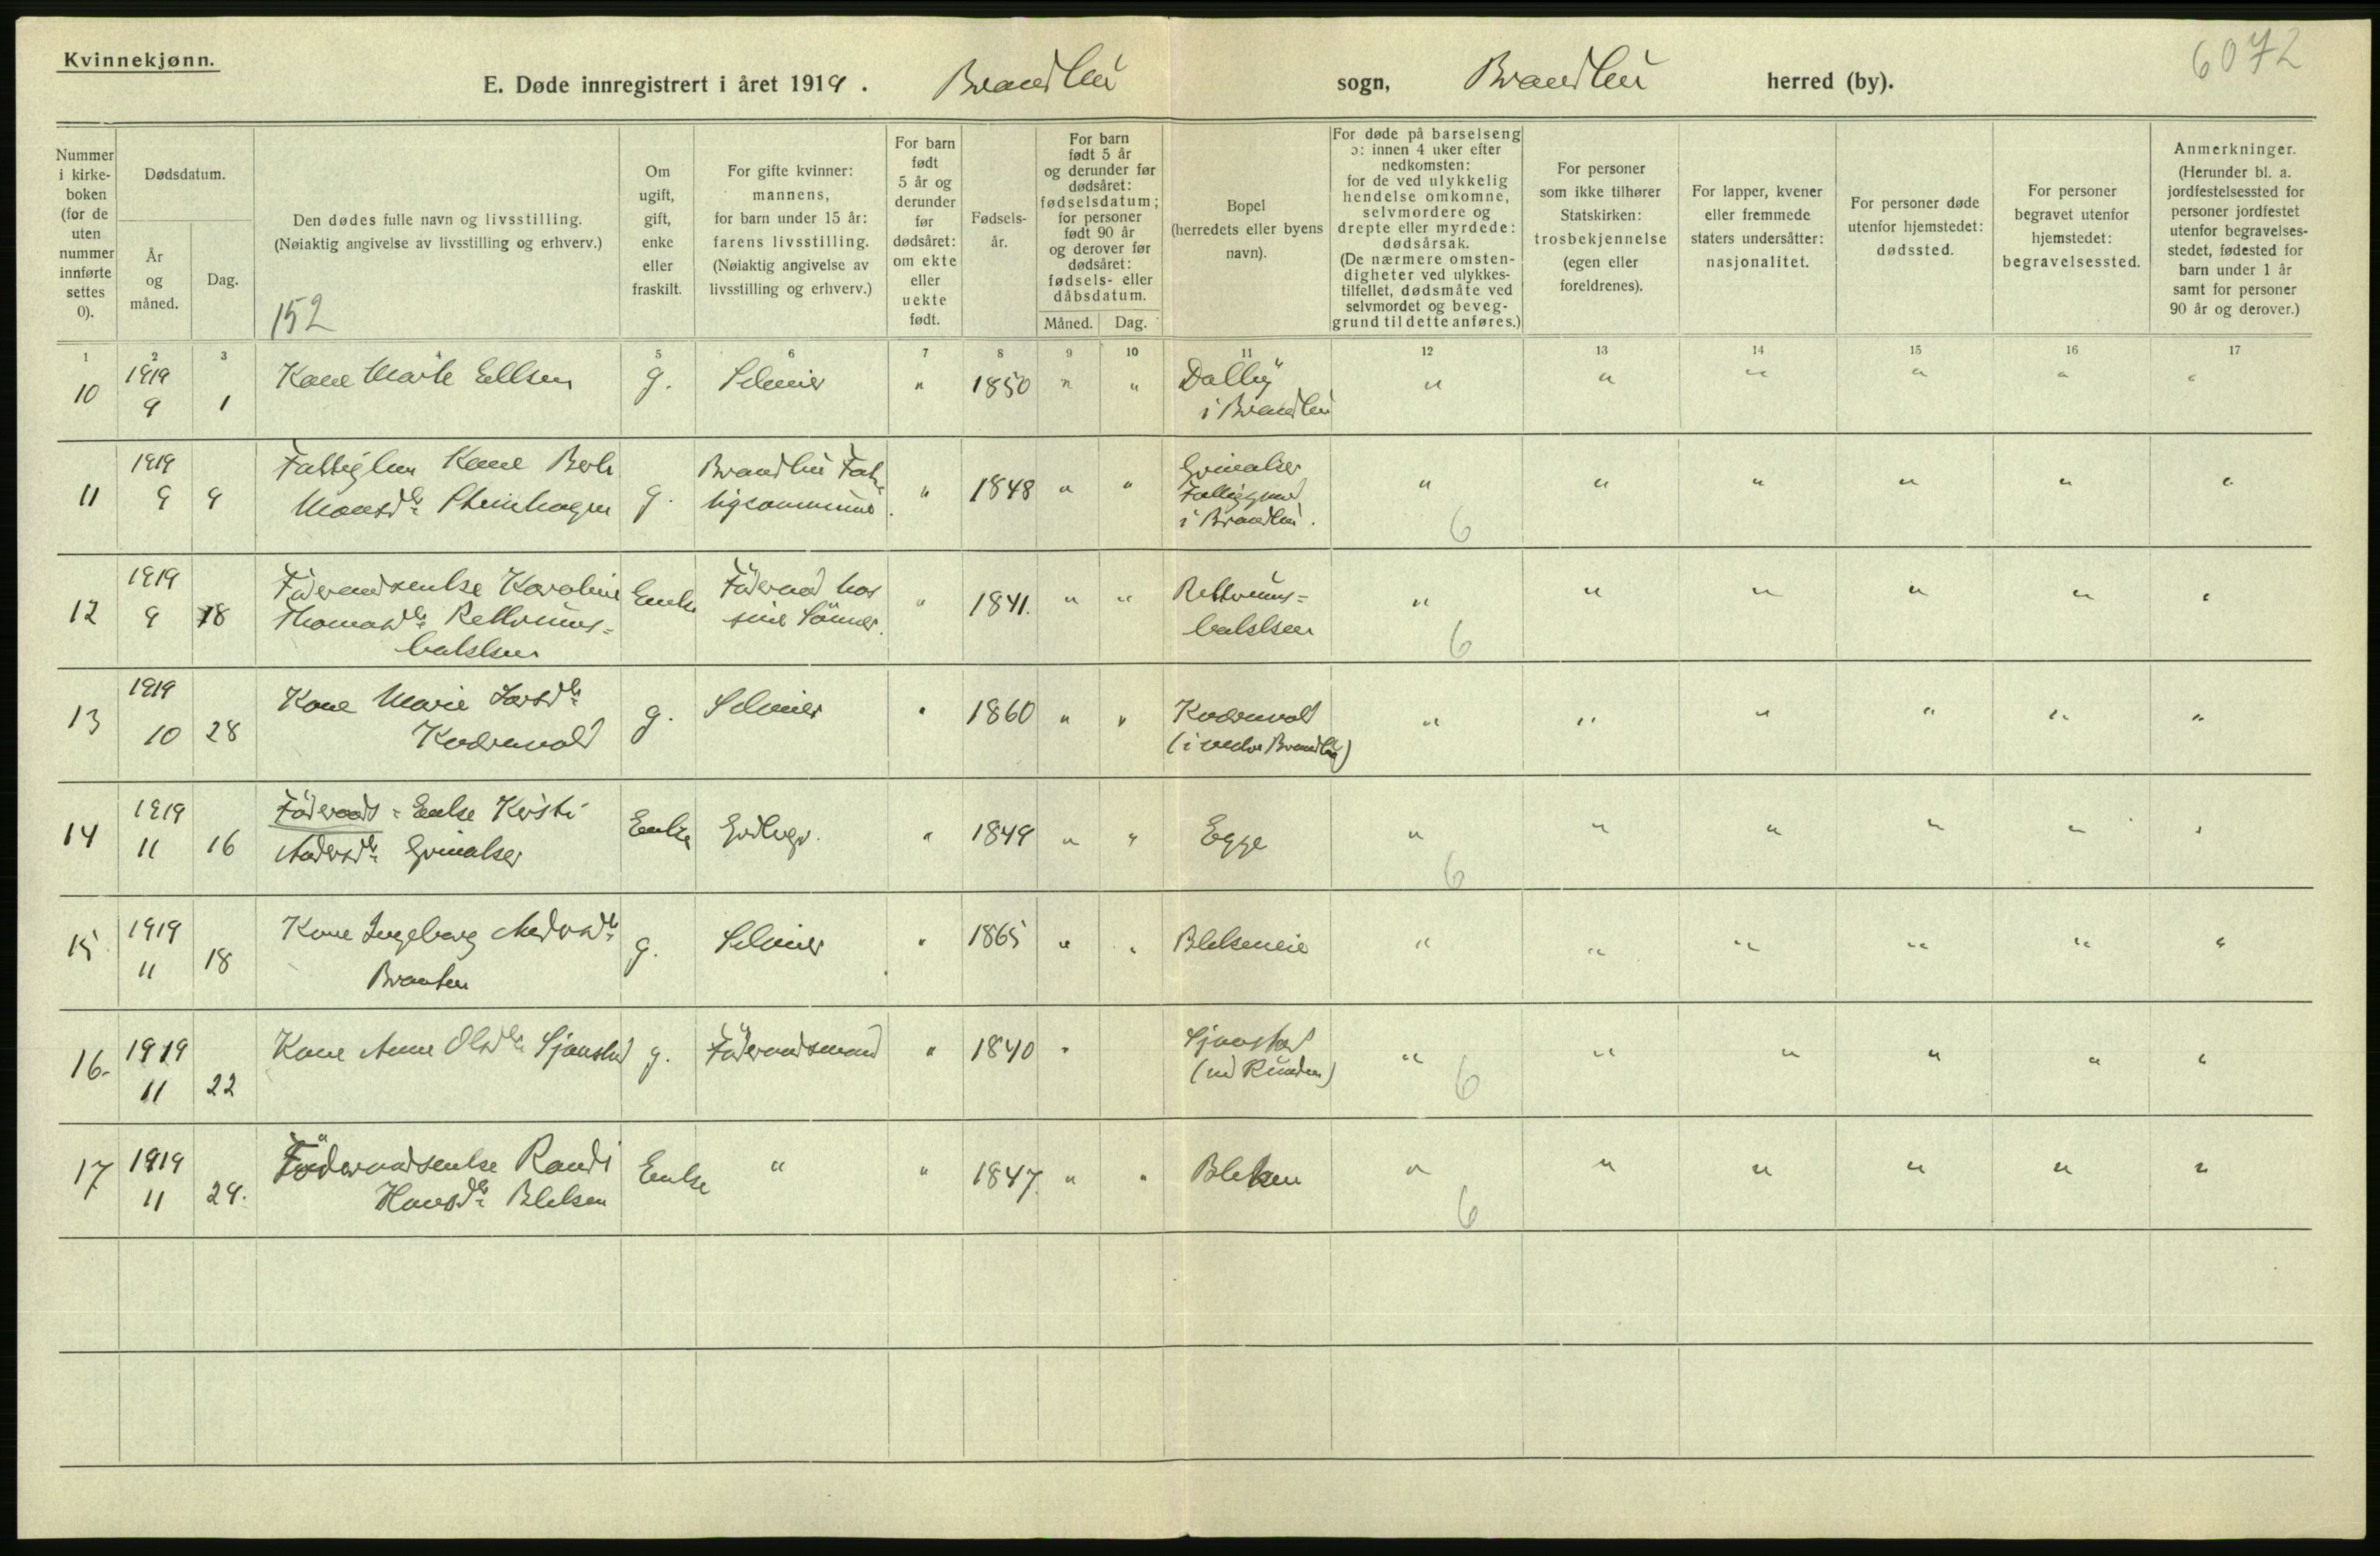 Kvinnekjønn.
6072
E. Døde innregistrert i året 1919. Brandbu sogn, Brandbu herred (by).
Nummer i kirke-boken (for de uten nummer innførte settes 0).
Dødsdatum.
År og måned.
Dag.
Den dødes fulle navn og livsstilling.
(Nøiaktig angivelse av livsstilling og erhverv.)
152
Om ugift, gift, enke eller fraskilt.
For gifte kvinner: mannens, for barn under 15 år: farens livsstilling. (Nøiaktig angivelse av livsstilling og erhverv.)
For barn født 5 år og derunder før dødsåret: om ekte eller uekte født.
Fødsels-år.
For barn født 5 år og derunder før dødsåret: fødselsdatum; for personer født 90 år og derover før dødsåret: fødsels- eller dåbsdatum.
Måned. Dag.
Bopel (herredets eller byens navn).
For døde på barselseng ɔ: innen 4 uker efter nedkomsten: for de ved ulykkelig hendelse omkomne, selvmordere og drepte eller myrdede: dødsårsak. (De nærmere omsten-digheter ved ulykkes-tilfellet, dødsmåte ved selvmordet og beveg-grund til dette anføres.)
For personer som ikke tilhører Statskirken: trosbekjennelse (egen eller foreldrenes).
For lapper, kvener eller fremmede staters undersåtter: nasjonalitet.
For personer døde utenfor hjemstedet: dødssted.
For personer begravet utenfor hjemstedet: begravelsessted.
Anmerkninger. (Herunder bl. a. jordfestelsessted for personer jordfestet utenfor begravelses-stedet, fødested for barn under 1 år samt for personer 90 år og derover.)
1 2 3 4 5 6 7 8 9 10 11 12 13 14 15 16 17
10 1919 9 1 Kone g. Selveier " 1850 " " i Brandbu " " " " " "
11 1919 9 9 Kone g. Brandbu " 1848 " " i Brandbu. " " " " " "
6
12 1919 9 18 Føderaadsenke Karoline Thomasdtr Enke Føderaad hos sine Sønner. " 1841. " " " " " " " "
6
13 1919 10 28 Kone Marie Larsdtr g. Selveier " 1860 " " " " " " " "
14 1919 11 16 Føderaads-Enke Kersti Andersdtr Enke " 1849 " " Egge " " " " " "
6
15 1919 11 18 Kone Ingeborg g. Selveier " 1865 " " " " " " " "
16. 1919 11 22 Kone Anne Olsdtr g. Føderaadsmand " 1840 " " " " " " "
6
17 1919 11 29. Føderaadsenke Randi Hansdtr Bleken Enke " " 1847. " " Bleken " " " " " "
6